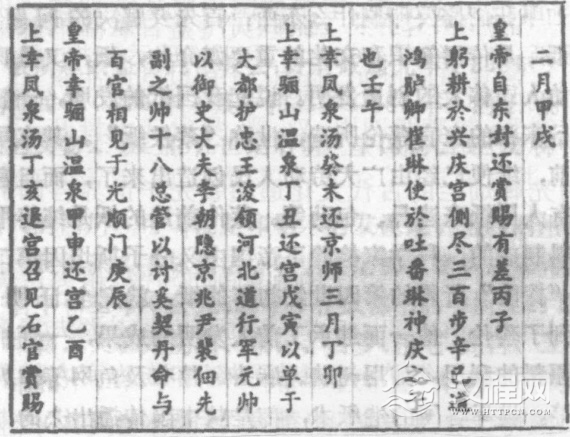 二月甲戌
皇帝自东封还赏赐有差丙子
上躬耕於兴庆宫侧尽三百步辛已
鸿胪卿崔琳使於吐番琳神庆之
也壬午
上幸凤泉汤癸未还京师三月丁卯
上幸骊山温泉丁丑还宫戊寅以单于
大都护忠王浚领河北道行军元帅
以御史大夫李朝隐京兆尹裴佃先
副之帅十八总管以讨奚契丹命与
百官相见于光顺门庚辰
皇帝幸骊山温泉甲申还宫乙酉
上幸凤泉汤丁亥退宫召见石官赏赐
汉程网